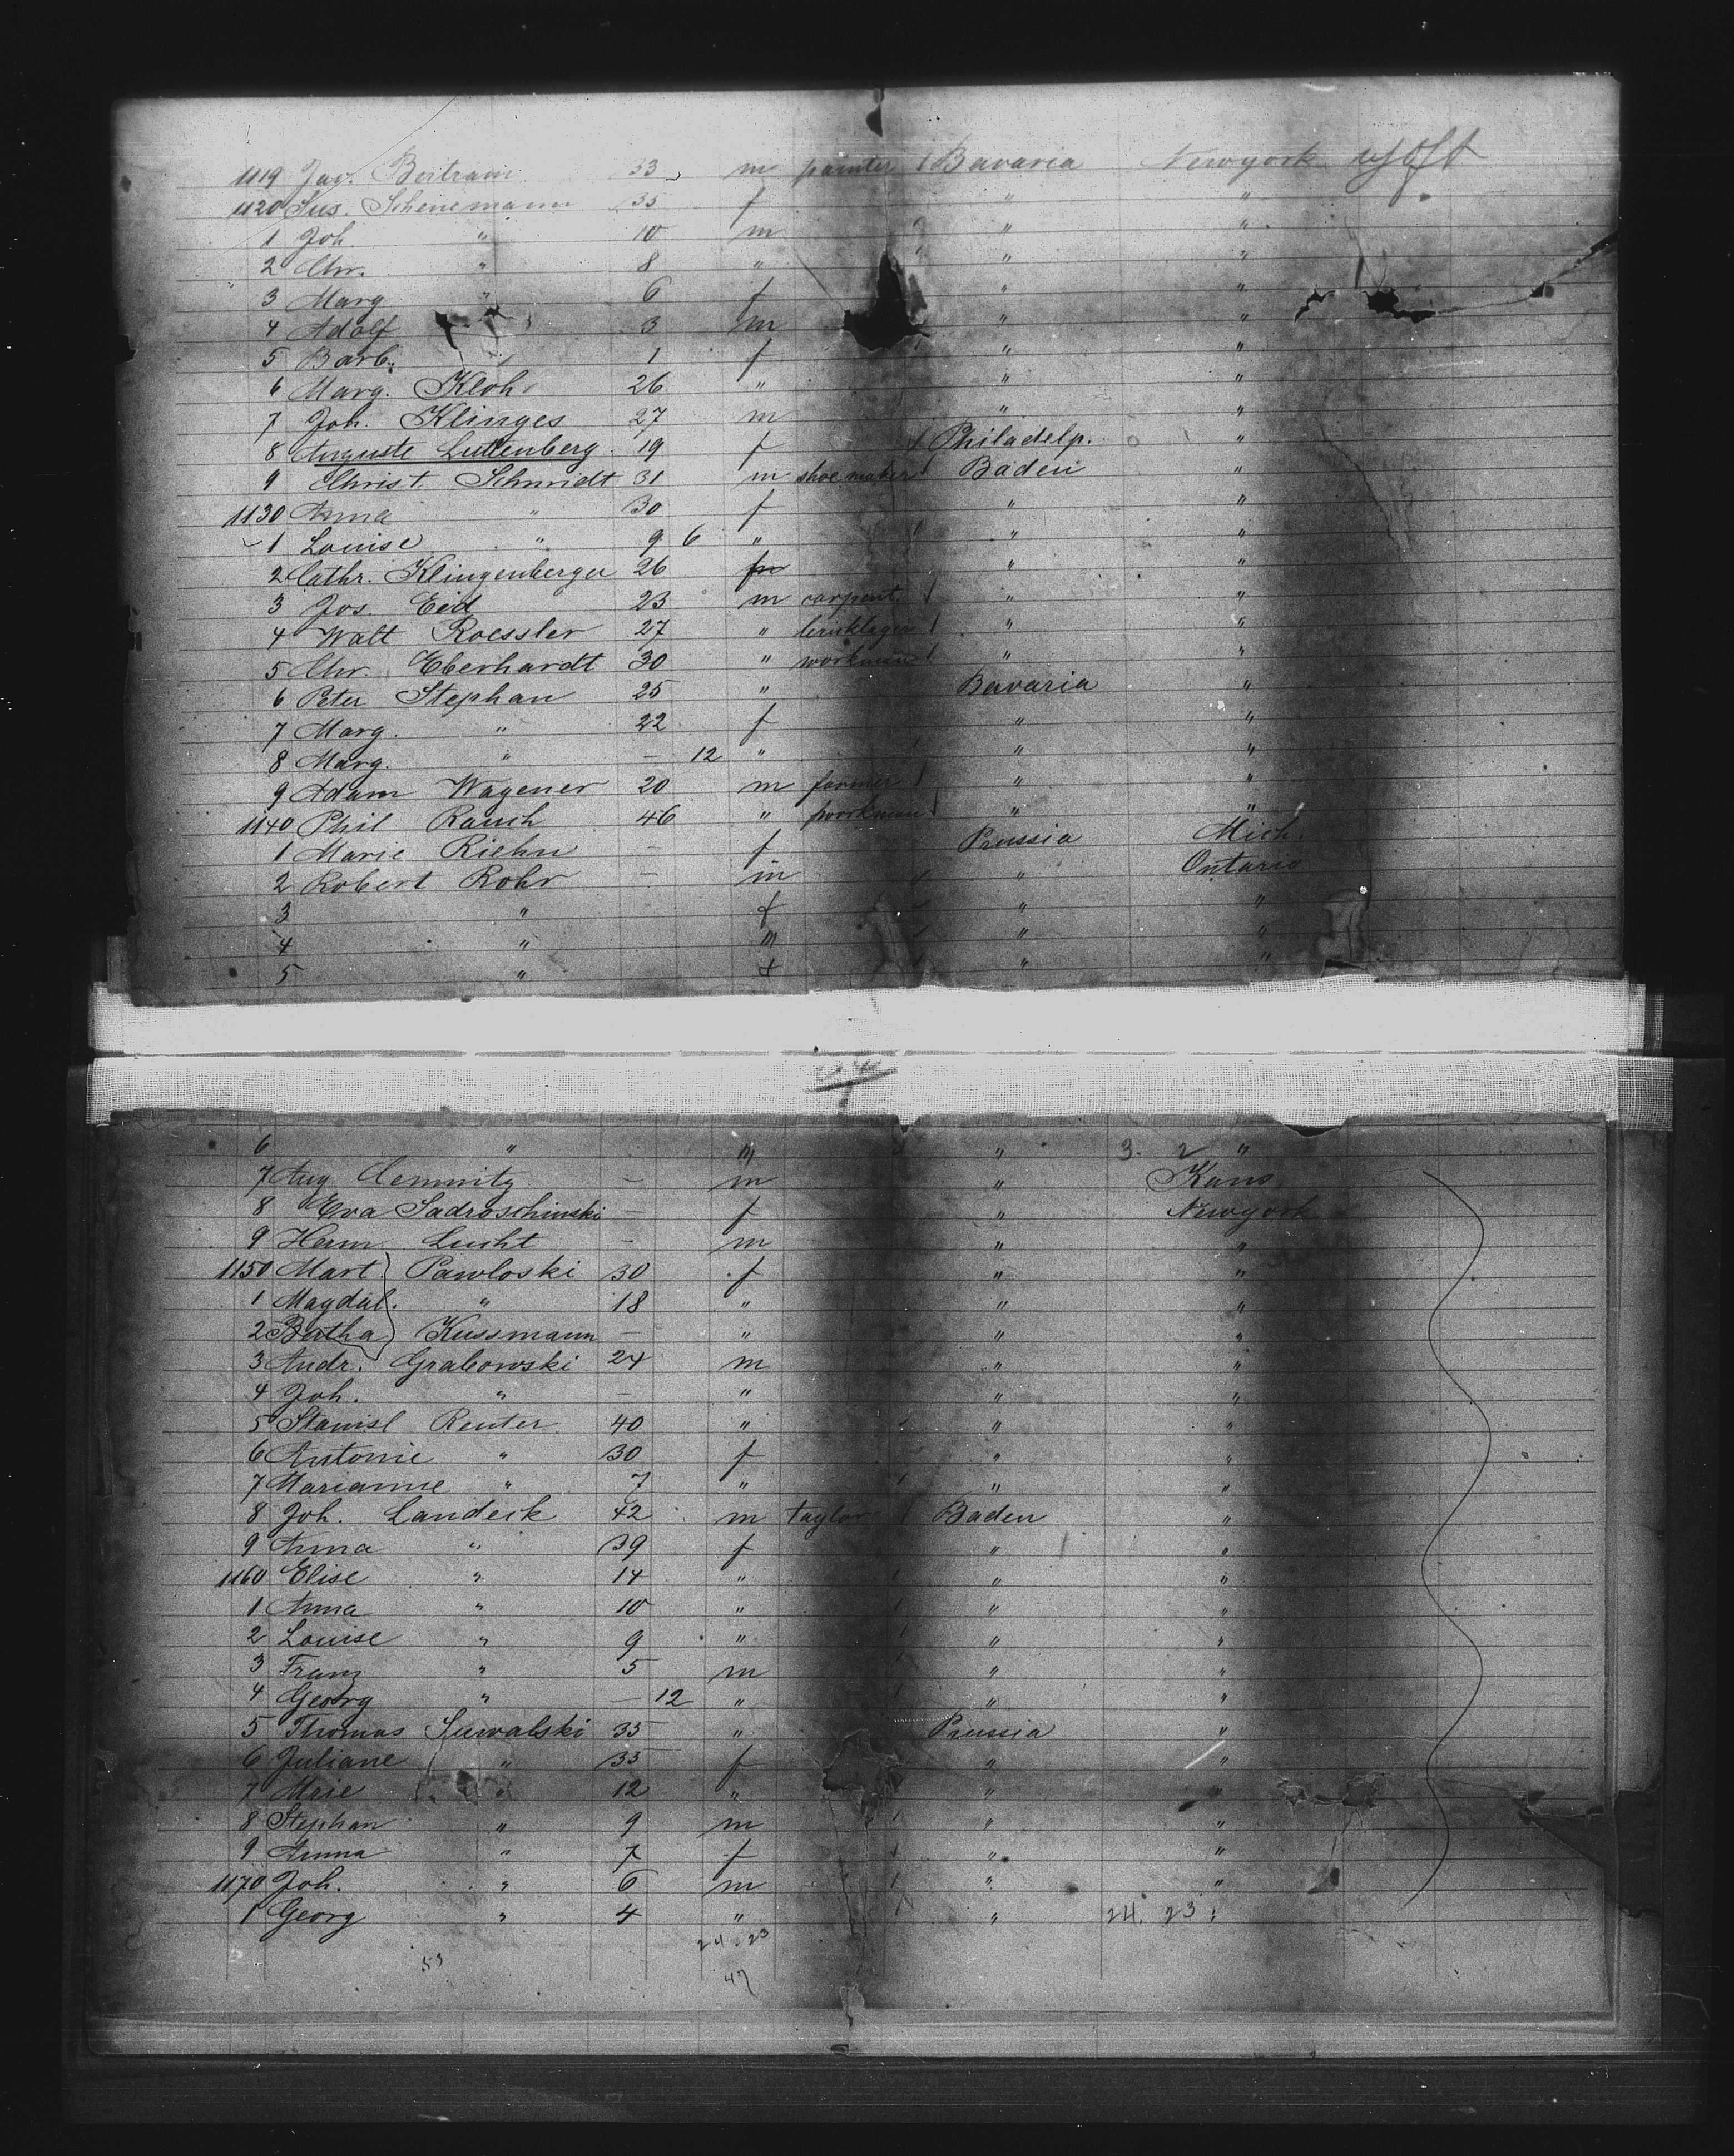 1119 Jac. Bertram 33 m painter Bavaria Newyork
1120 Sus. Schenemann 35 f " "
1 Joh. " 10 m " "
2 Chr. " 8 " " "
3 Marg " 6 f " "
4 Adolf " 3 m " "
5 Barb. 1 f " "
6 Marg. Kloh 26 " " "
7 Joh. Klinges 27 m " "
8 Auguste Luttenberg 19 f Philadelp. "
9 Christ. Schmidt 31 m shoemaker Baden "
1130 Anna " 30 f " "
1 Louise " 9 6 " " "
2 Cathr. Klingenberger 26 " "
3 Jos. Eid 23 m carpent. " "
4 Walt Roessler 27 " bricklayer " "
5 Chr. Eberhardt 30 " workman " "
6 Peter Stephan 25 " Bavaria "
7 Marg. " 22 f " "
8 Marg. " — 12 " " "
9 Adam Wagener 20 m farmer " "
1140 Phil Rauch 46 " workman " "
1 Marie Riehn — f Prussia Mich.
2 Robert Rohr — m " Ontario
3 " f " "
4 " m " "
5 " f " "
6 " m " 3. 2 "
7 Aug Clemnitz — m " Kans
8 Eva Sadroschinski — f " Newyork
9 Herm Lucht — m " "
1150 Mart Pawloski 30 f " "
1 Magdal. " 18 " " "
2 Bertha Kussmann — " " "
3 Andr. Grabowski 24 m " "
4 Joh. " — " " "
5 Stanisl Reuter 40 " " "
6 Antonie " 30 f " "
7 Marianne " 7 " " "
8 Joh. Landeck 42 m taylor Baden "
9 Anna " 39 f " "
1160 Elise " 14 " " "
1 Anna " 10 " " "
2 Louise " 9 " " "
3 Franz " 5 m " "
4 Georg " — 12 " " "
5 Thomas Suwalski 35 " Prussia "
6 Juliane " 35 f " "
7 Mrie " 12 " " "
8 Stephan " 9 m " "
9 Anna " 7 f " "
1170 Joh. " 6 m " "
1 Georg " 4 " " 24. 23 "
24. 23
53
47